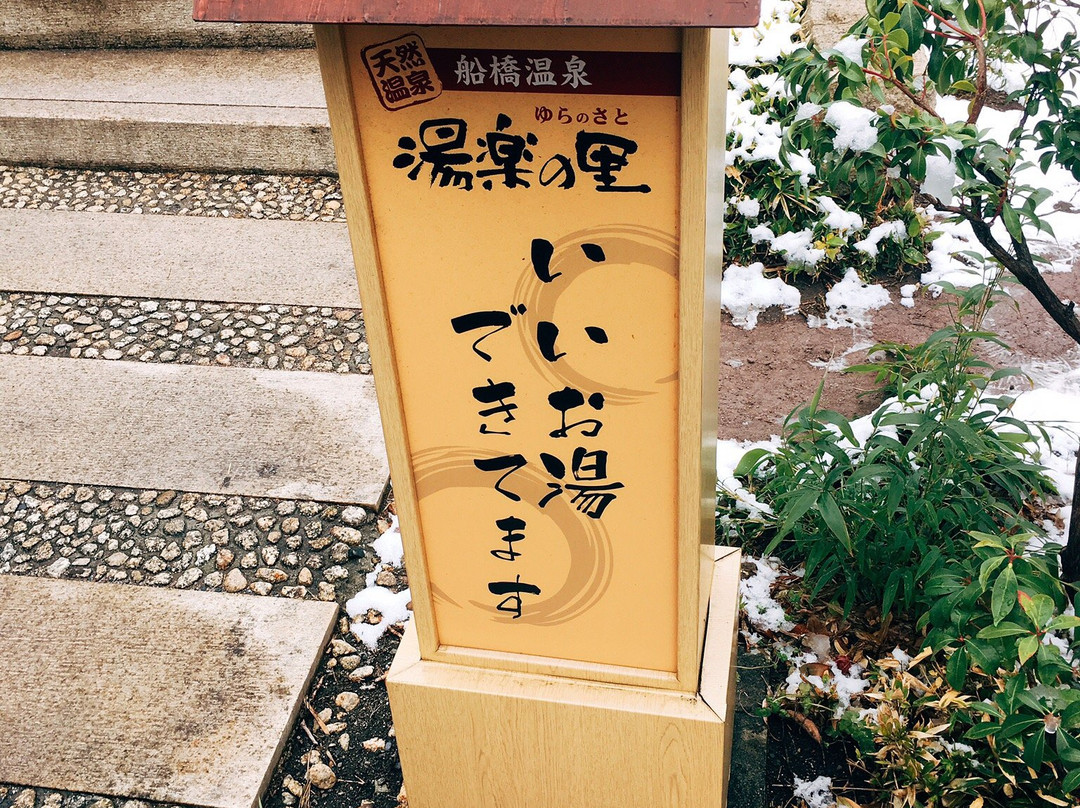 天然
温泉
船橋温泉
ゆらのさと
湯楽の里
いいお湯
できてます